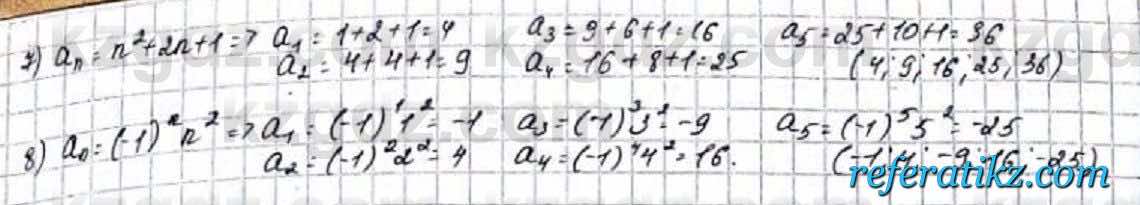 7) aₙ = n²+2n+1 => a₁ = 1+2+1=4 a₃ = 9+6+1=16 a₅ = 25+10+1=36
a₂ = 4+4+1=9 a₄ = 16+8+1=25 (4; 9; 16; 25; 36)
8) aₙ = (-1)ⁿn² => a₁ = (-1)¹1² = -1 a₃ = (-1)³3² = -9 a₅ = (-1)⁵5² = -25
a₂ = (-1)²2² = 4 a₄ = (-1)⁴4² = 16. (-1; 4; -9; 16; -25)
referatikz.com